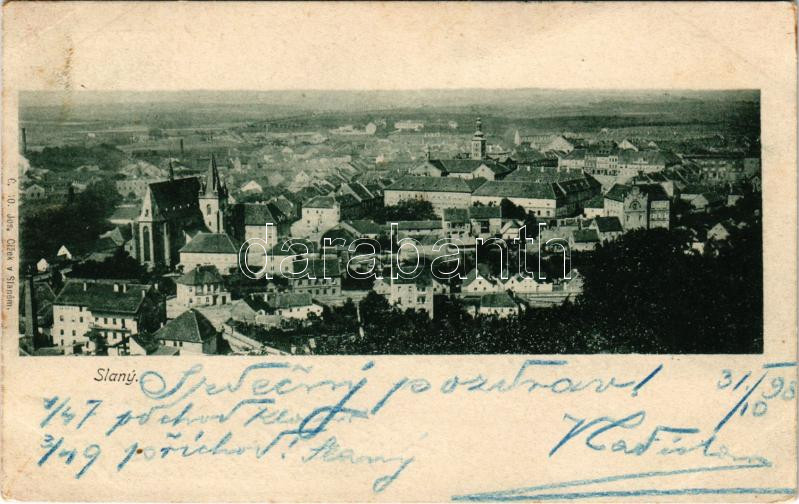 darabanth
C. 10. Jos. Čížek v Slaném.
Slaný.
Srdečný pozdrav!
31/10 98
4/47 pochod
3/49 příchod: Slaný
Ladislav